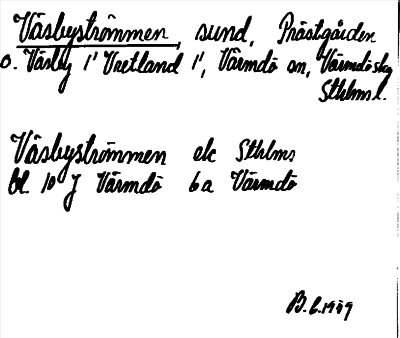 Väsbyströmmen, sund, Prästgården
o. Väsby 1' Vretland 1', Värmdö sn, Värmdö skg
Sthlms l.
Väsbyströmmen ek Sthlms
bl. 10 J Värmdö 6 a Värmdö
B. L. 1989